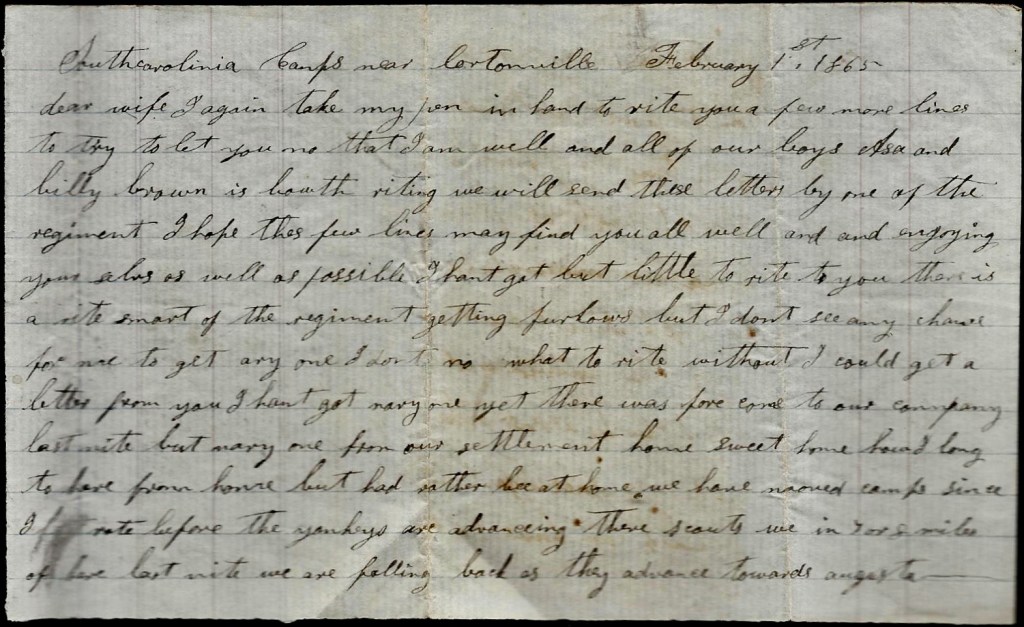 Southcarolinia Camps near Cortonville February 1st. 1865
dear wife I again take my pen in hand to rite you a few more lines
to try to let you no that I am well and all of our boys Asa and
billy brown is bowth riting we will send these letters by one of the
regiment I hope thes few lines may find you all well and and enjoying
your selvs as well as possible I hant got but little to rite to you there is
a rite smart of the regiment getting furlows but I dont see any chance
for me to get ary one I dont no what to rite without I could get a
letter from you I hant got nary one yet there was fore come to our company
last nite but nary one from our settlement home sweet home how I long
to hare from home but had rather bee at home we have mooved camps since
I rote before the yankeys are advancing there scouts we in 7 or 8 miles
of here last nite we are falling back as they advance towards augusta